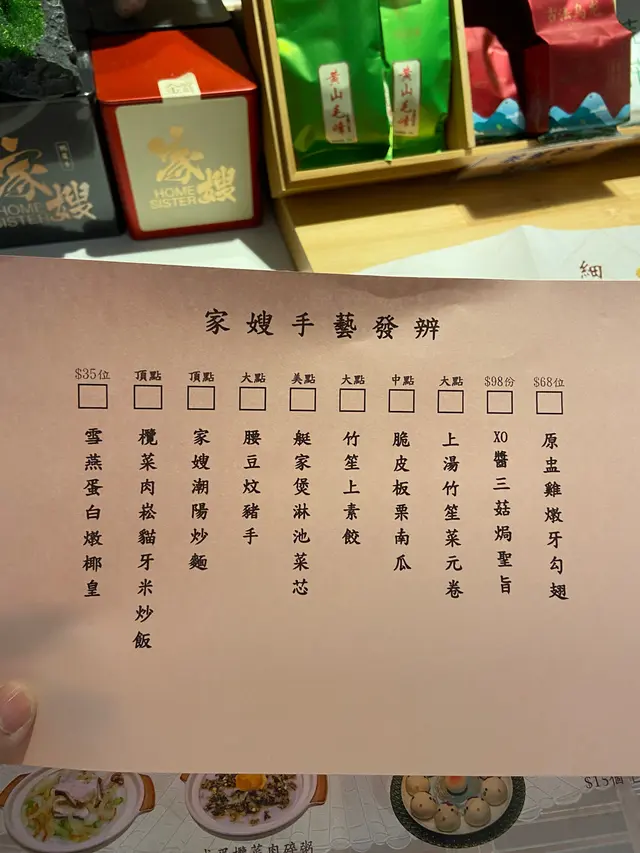 家嫂
HOME
SISTER
家嫂
HOME
SISTER
黄山毛峰
黄山毛峰
細
家嫂手藝發辨
$68位
原盅雞燉牙勾翅
$98份
XO醬三菇焗聖旨
大點
上湯竹笙菜元卷
中點
脆皮板栗南瓜
大點
竹笙上素餃
美點
艇家煲淋池菜芯
大點
腰豆炆豬手
頂點
家嫂潮陽炒麵
頂點
欖菜肉崧貓牙米炒飯
$35位
雪燕蛋白燉椰皇
$15個